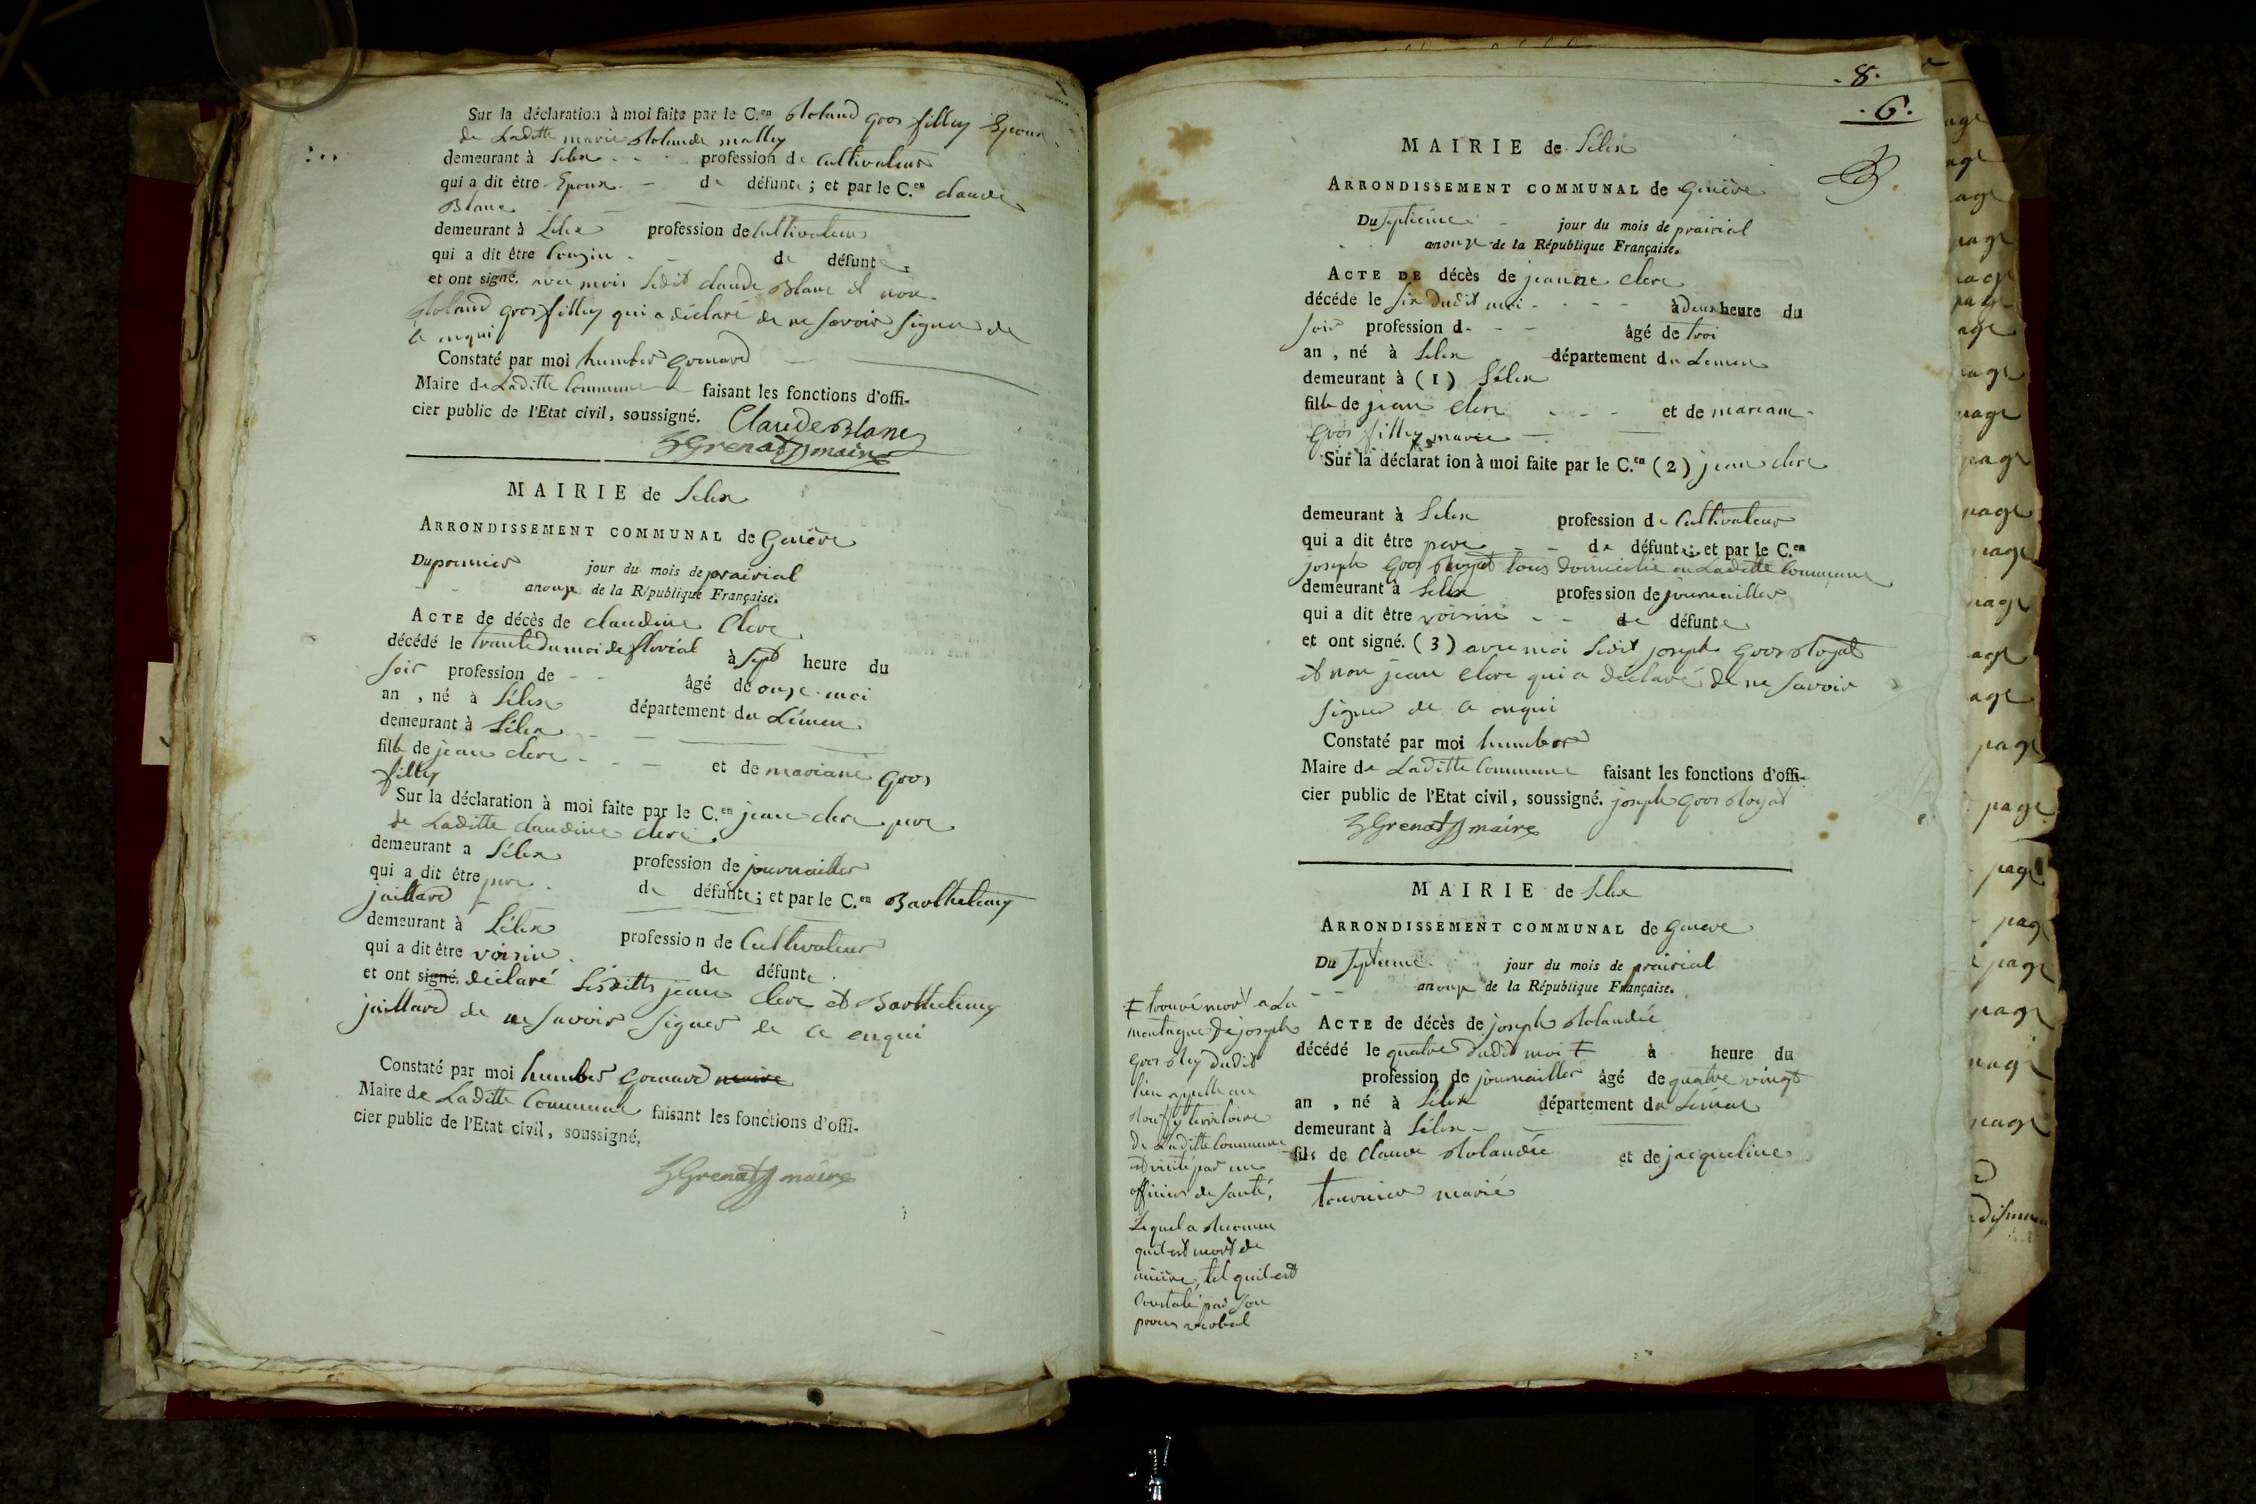 Sur la déclaration à moi faite par le C.en Roland gros fillex Epoux
de Laditte marie Rolande mallex
demeurant à Lélex profession de Cultivateur
qui a dit être Epoux de défunte ; et par le C.en claude
Blanc
demeurant à Lélex profession de Cultivateur
qui a dit être Cougin de défunte
et ont signé. avec moi Ledit claude Blanc et non
Roland gros fillex qui a déclaré de ne savoir signer de
ce enqui
Constaté par moi humber grenard
Maire de Laditte Commune faisant les fonctions d'offi-
cier public de l'Etat civil, soussigné.
Claude Blanc
maire
MAIRIE de Lélex
ARRONDISSEMENT COMMUNAL de Genève
Du premier jour du mois de prairial
an onze de la République Française.
ACTE de décès de claudine Clerc
décédé le trante du moi de florèal à sept heure du
soir profession de âgé de onze moi
an , né à Lélex département du Lémen
demeurant à Lélex
fille de jean clerc et de mariane gros
fillex
Sur la déclaration à moi faite par le C.en jean clerc pere
de Laditte claudine clerc
demeurant a Lélex profession de journaillier
qui a dit être pere de défunte ; et par le C.en Barthelemy
juillard
demeurant à Lélex profession de Cultivateur
qui a dit être voisin de défunte
et ont signé. déclaré Lesditts jean Clerc et Barthelemy
juillard de ne savoir signer de ce enqui
Constaté par moi humber grenard maire
Maire de Laditte Commune faisant les fonctions d'offi-
cier public de l'Etat civil, soussigné,
maire
. 8 .
. 6 .
MAIRIE de Lélex
ARRONDISSEMENT COMMUNAL de Genève
Du septième jour du mois de prairial
an onze de la République Française.
ACTE DE décès de jeanne clerc
décédé le six dudit moi à deux heure du
soir profession d âgé de troi
an , né à Lélex département du Lemen
demeurant à (1) Lélex
fille de jean clerc et de mariane
gros fillex mariés
Sur la déclarat ion à moi faite par le C.en (2) jean clerc
demeurant à Lélex profession de Cultivateur
qui a dit être pere de défunte ; et par le C.en
joseph gros Royat tous domicilié en Laditte Commune
demeurant à Lélex profession de journaillier
qui a dit être voisin de défunte
et ont signé. (3) avec moi Ledit joseph gros Royat
et non jean clerc qui a déclaré de ne savoir
signer de ce enqui
Constaté par moi humber
Maire de Laditte Commune faisant les fonctions d'offi-
cier public de l'Etat civil, soussigné. joseph gros Royat
maire
MAIRIE de Lélex
ARRONDISSEMENT COMMUNAL de Geneve
Du septieme jour du mois de prairial
an onze de la République Française.
ACTE de décès de joseph Rolandée
décédé le quatre dudit moi ‡ à heure du
profession de journaillier âgé de quatre vingt
an , né à Lélex département du Léman
demeurant à Lélex
fils de claude Rolandée et de jacqueline
tournier marié
‡ trouvé mort a La
montagne de joseph
gros dudit
lieu appellé au
territoire
de Laditte Commune
et visité par un
officier de santé,
Lequel a reconnu
quil est mort de
misère, tel quil est
Constaté par son
procès verbal
page
page
page
page
page
page
page
page
page
page